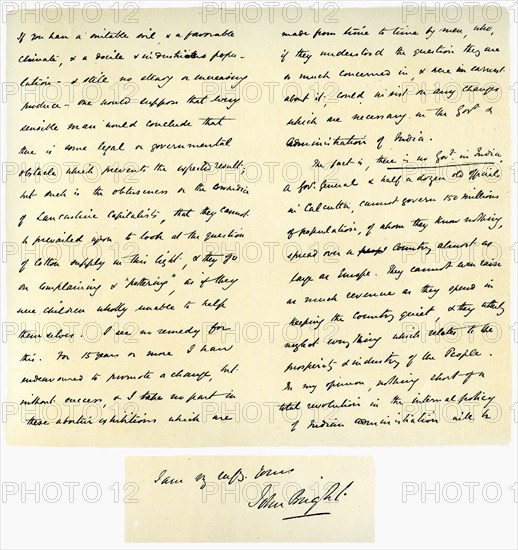 If you have a suitable soil, & a favorable
climate, & a docile & industrious popu-
lation - & still no steady or increasing
produce - one would suppose that every
sensible man would conclude that
there is some legal or governmental
obstacle which prevents the expected result;
but such is the obtuseness or the
of Lancashire Capitalists, that they cannot
be prevailed upon to look at the question
of Cotton supply in this light, & they go
on complaining & "pottering", as if they
were children wholly unable to help
themselves. I see no remedy for
this. For 15 years or more I have
endeavoured to promote a change, but
without success, & I take no part in
these abortive exhibitions which are
made from time to time by men, who,
if they understood the question they are
so much concerned in, & were in earnest
about it, could insist on any changes
which are necessary in the Govt. &
Administration of India.
The fact is, there is no Govt. in India.
A Gov. General & half a dozen old officials
in Calcutta, cannot govern 150 millions
of population, of whom they know nothing,
spread over a Country almost as
large as Europe. They cannot even raise
as much revenue as they spend in
keeping the Country quiet, & they utterly
neglect everything which relates to the
prosperity & industry of the People.
In my opinion, nothing short of a
total revolution in the internal policy
of Indian administration will be
I am vy respy. Yours
John Bright.
PHOTO12